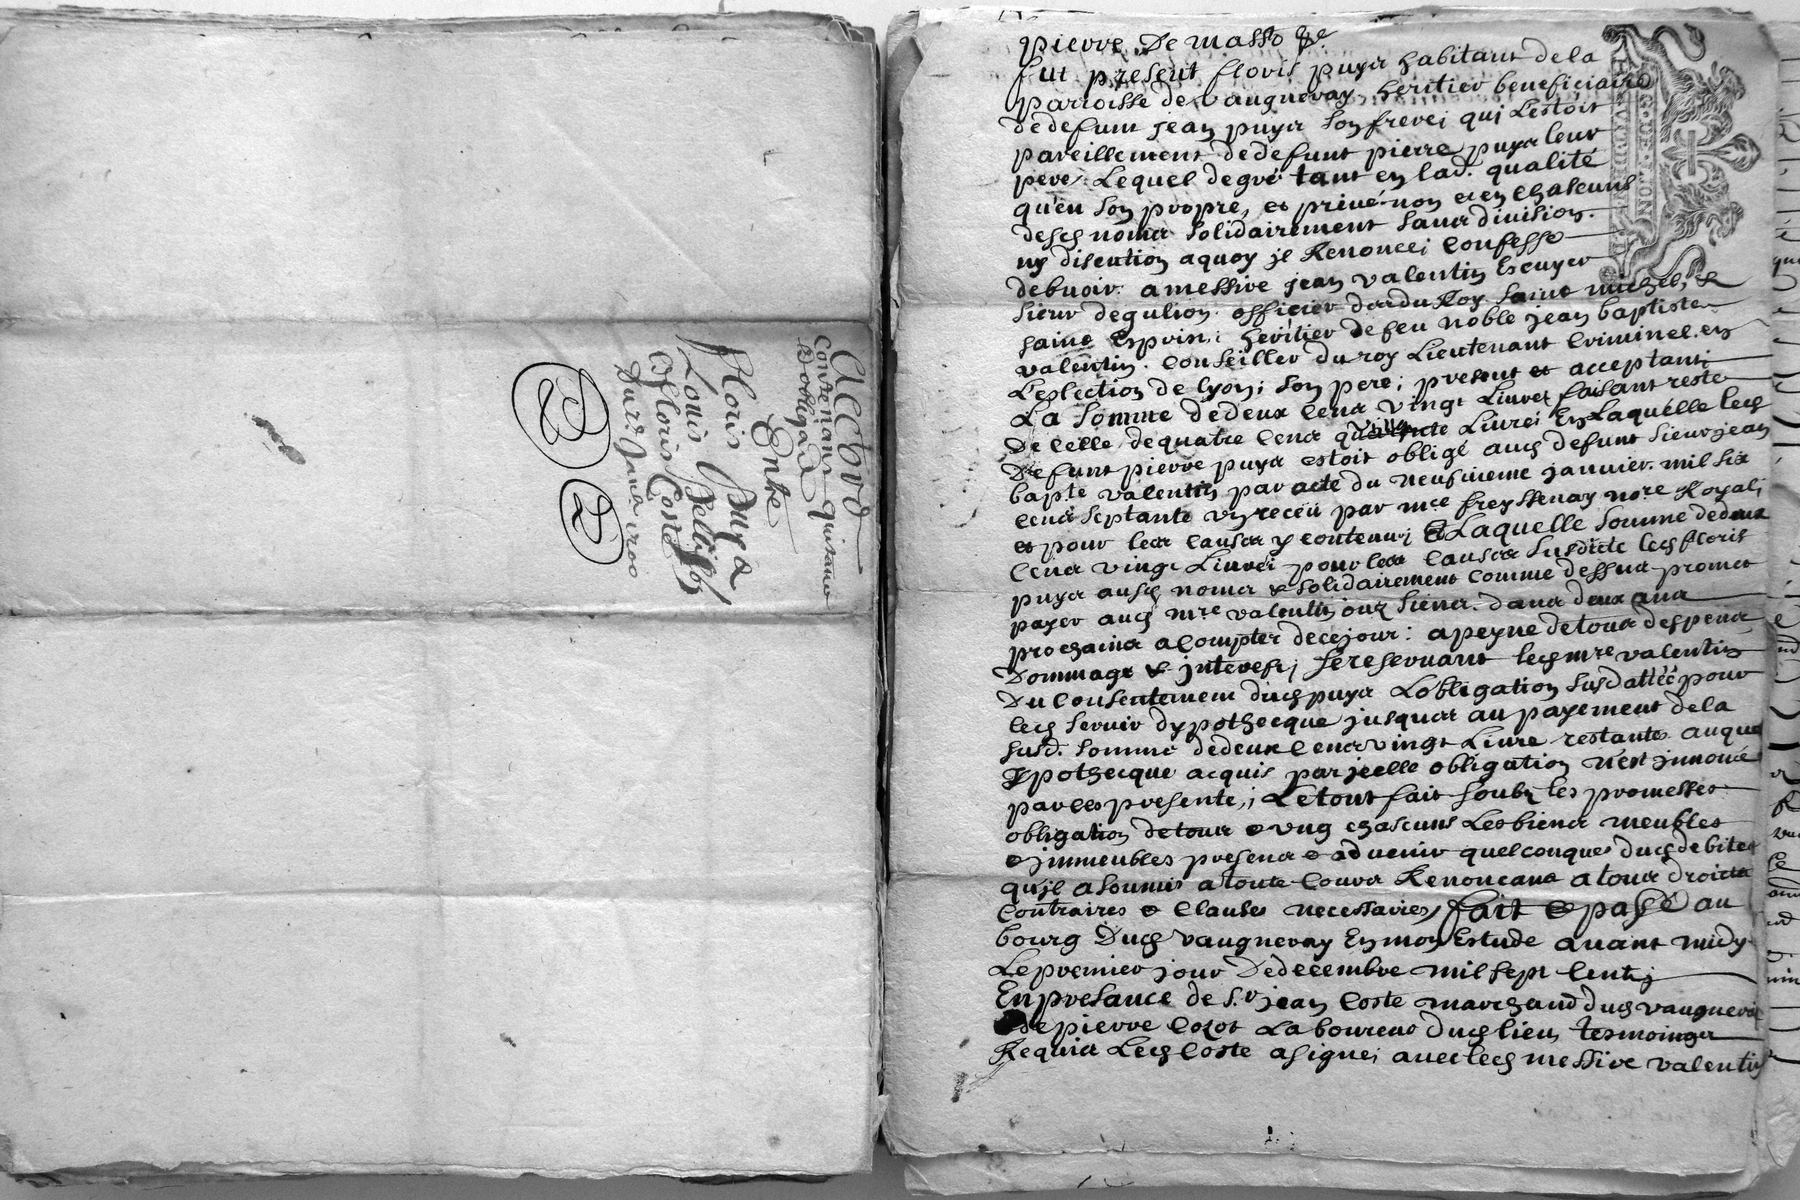 Accord
Contenant quitance
Entre
Floris Puys
Louis
Floris Coste
Du
Pierre De masso &c
fut present floris puys habitant de la
parroisse de vaugneray heritier beneficiaire
de defunt jean puys son frere; qui L'estoit
pareillement de defunt pierre puys leur
pere; Lequel de gré tant en lad. qualité
qu'en son propre, et privé non et en chascuns
desd noms solidairement sans division
ny discution a quoy il Renonce; confesse
debvoir a messire jean valentin Escuyer
sieur de gulion officier du Roy saint michel, &
saint Esprit; heritier de feu noble jean baptiste
valentin conseiller du roy Lieutenant Criminel en
L'eslection de lyon; son pere; present et acceptant;
La somme de deux cens vingt Livres faisant reste
de celle de quatre cens Livres En Laquelle led
Defunt pierre puys estoit obligé aud defunt sieur jean
bapte valentin par acte du neufvieme janvier mil six
cens septante receu par mre freyssenay nore Royal;
et pour les causes y contenu; Laquelle somme de deux
cens vingt Livres pour les causes susdicte led floris
puys ausd noms & solidairement comme dessus promet
payer aud mre valentin ou es siens dans deux ans
prochains a compter de ce jour: a peyne de tous despens
Dommage & jnterest; se reservant led mre valentin
Du consentement dud puys L'obligation susdattée pour
led servir dypothecque jusques au payement de la
susd. somme de deux cens vingt Livre restante auque
ypothecque acquis par jcelle obligation n'est jnnové
par ces presente; Le tout fait soubz les promesses
obligation de tous & ung chascuns Les biens meubles
& jmmeubles presens & advenir quelconques dud debiteur
qu'jl a soumis a toute Cours Renoncans a tous droicts
contraires & clauses necessaires, fait & passé au
bourg Dud vaugneray En mon Estude avant midy
Le premier jour De decembre mil sept cents
En presance de s.r jean Coste marchand dud vaugneray
& de pierre Laboureur dud lieu tesmoings
Requis Led Coste a signé; avec led messire valentin